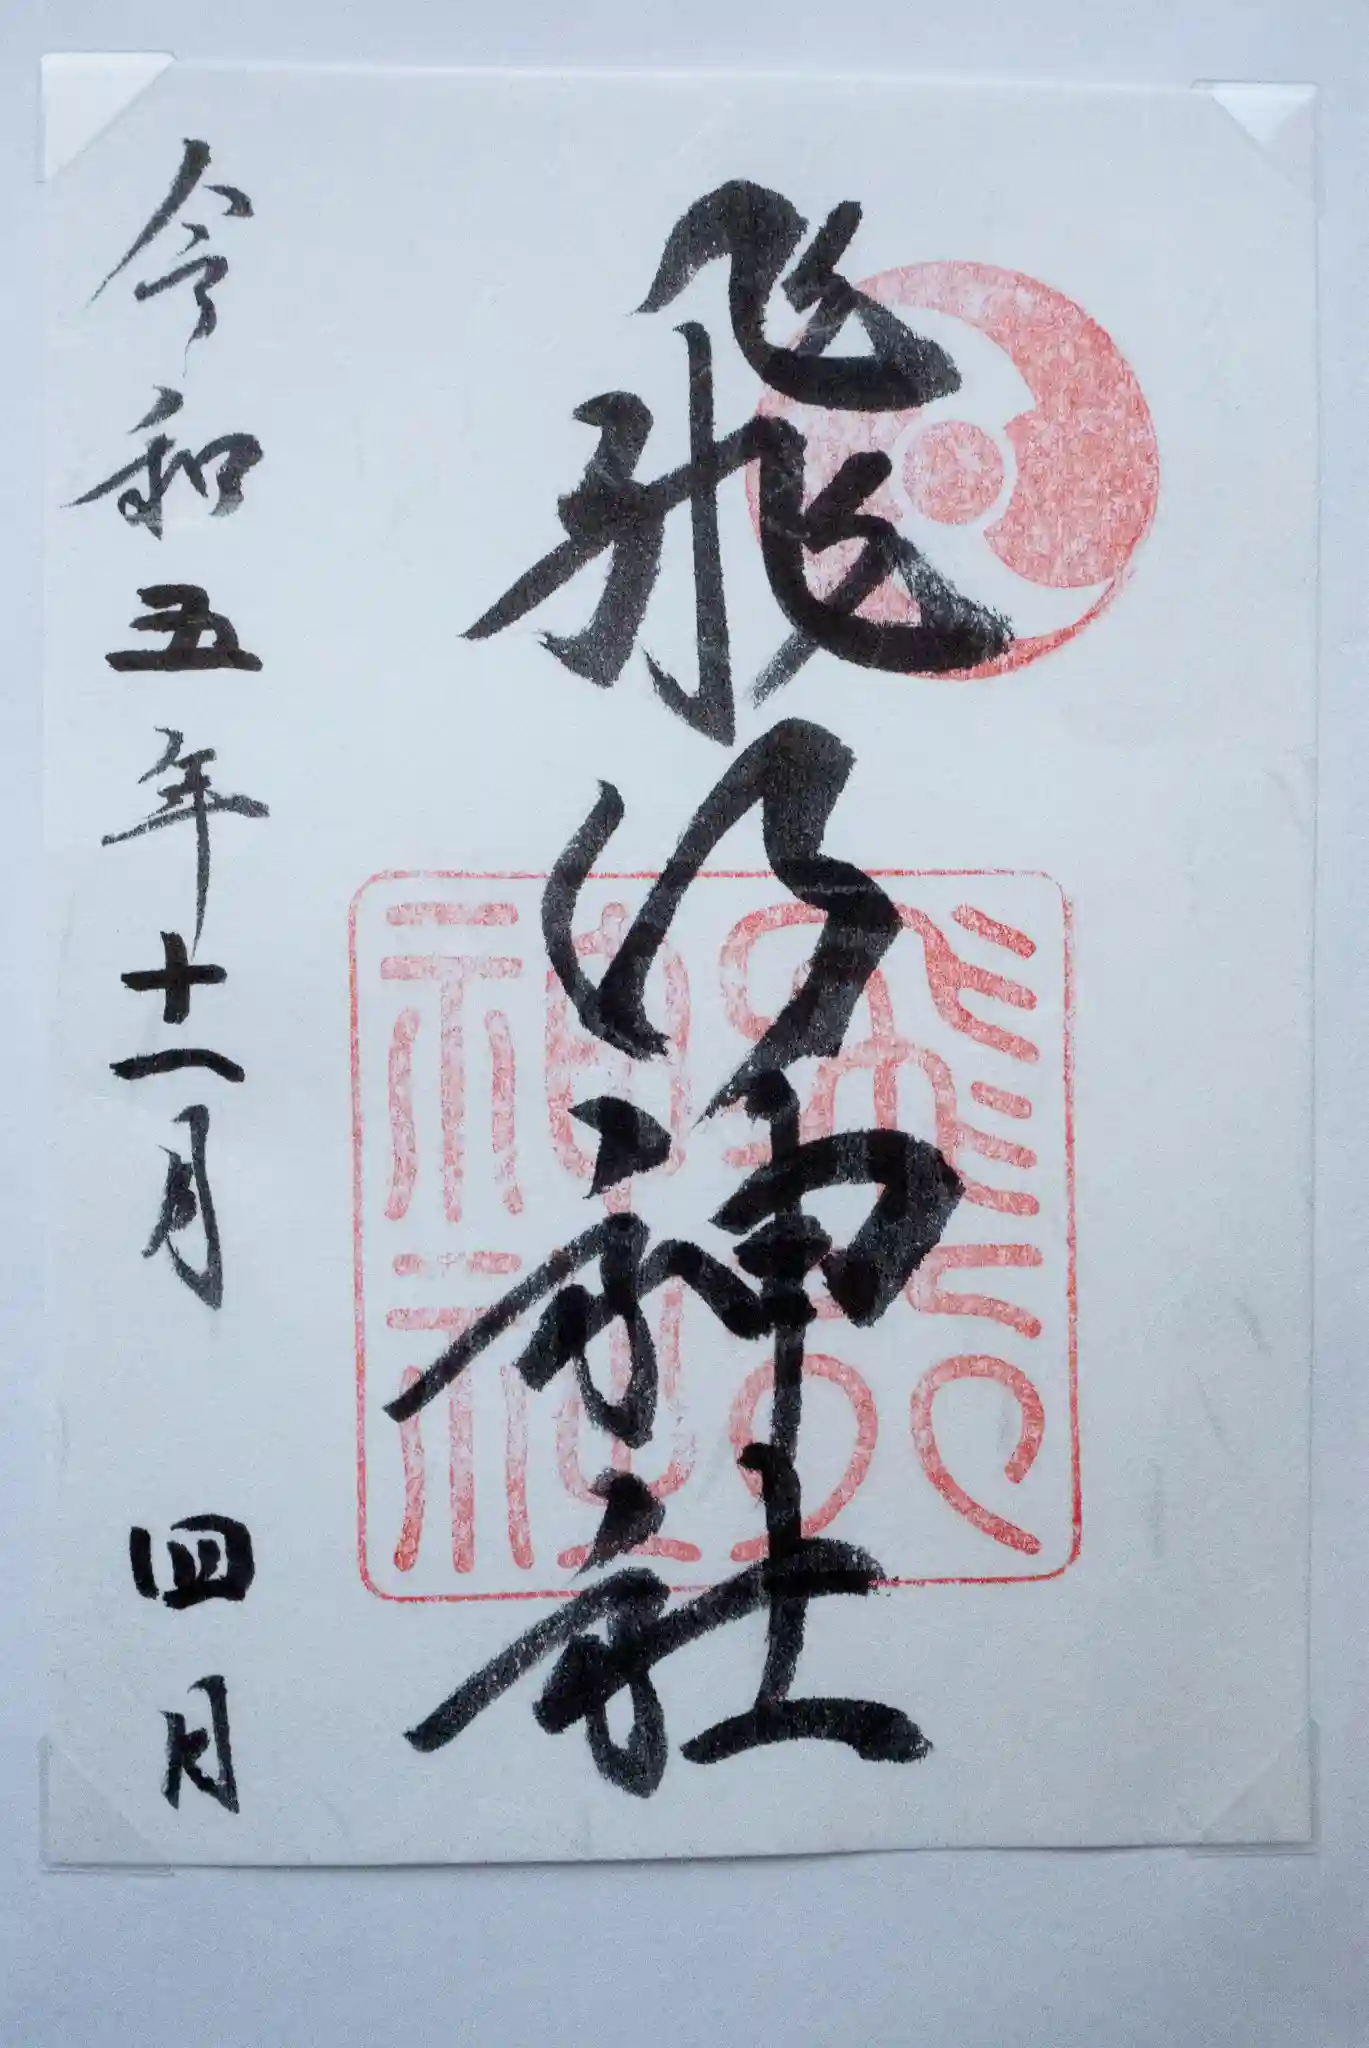 飛行神社
令和五年十一月 四日
飛行神社